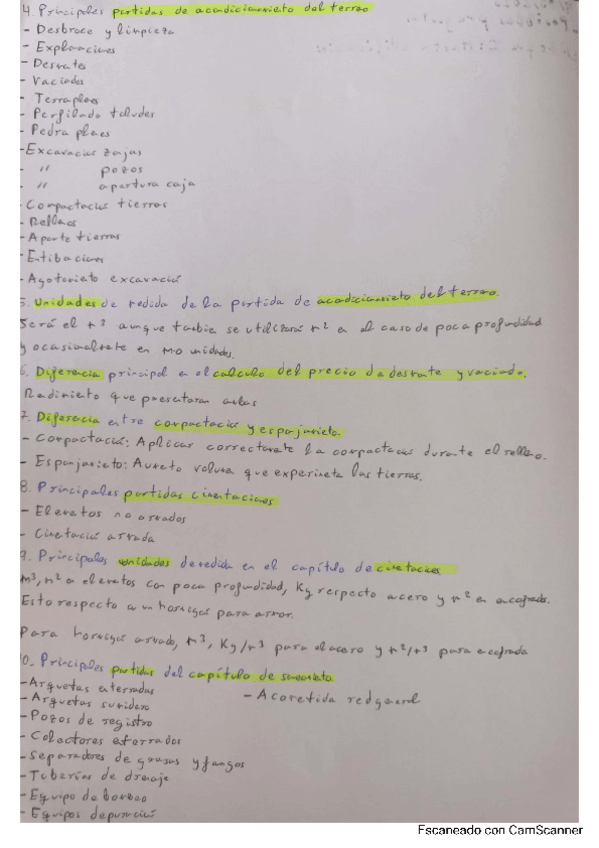 4. Principales partidas de acondicionamiento del terreno
- Desbroce y limpieza
- Explanaciones
- Desmontes
- Vaciados
- Terraplenes
- Perfilado taludes
- Pedraplenes
- Excavación zanjas
- " pozos
- " apertura caja
- Compactación tierras
- Rellenos
- Aporte tierras
- Entibaciones
- Agotamiento excavación
5. Unidades de medida de la partida de acondicionamiento del terreno.
Será el m3 aunque también se utilizará m2 en el caso de poca profundidad
y ocasionalmente en m o unidades.
6. Diferencia principal en el calculo del precio de desmonte y vaciado.
Rendimiento que presentaran ambas
7. Diferencia entre compactación y esponjamiento
- Compactación: Aplicar correctamente la compactación durante el relleno.
- Esponjamiento: Aumento volumen que experimenta las tierras.
8. Principales partidas cimentaciones
- Elementos no armados
- Cimentación armada
9. Principales unidades de medida en el capítulo de cimentaciones
m3, m2 a elementos con poca profundidad, Kg respecto acero y m2 en encofrados.
Esto respecto a un hormigón para armar.
Para hormigón armado, m3, Kg/m3 para el acero y m2/m3 para encofrado
10. Principales partidas del capítulo de saneamiento
- Arquetas enterradas
- Acometida red general
- Arquetas sumidero
- Pozos de registro
- Colectores enterrados
- Separadores de grasas y fangos
- Tuberías de drenaje
- Equipo de bombeo
- Equipos depuración
Escaneado con CamScanner